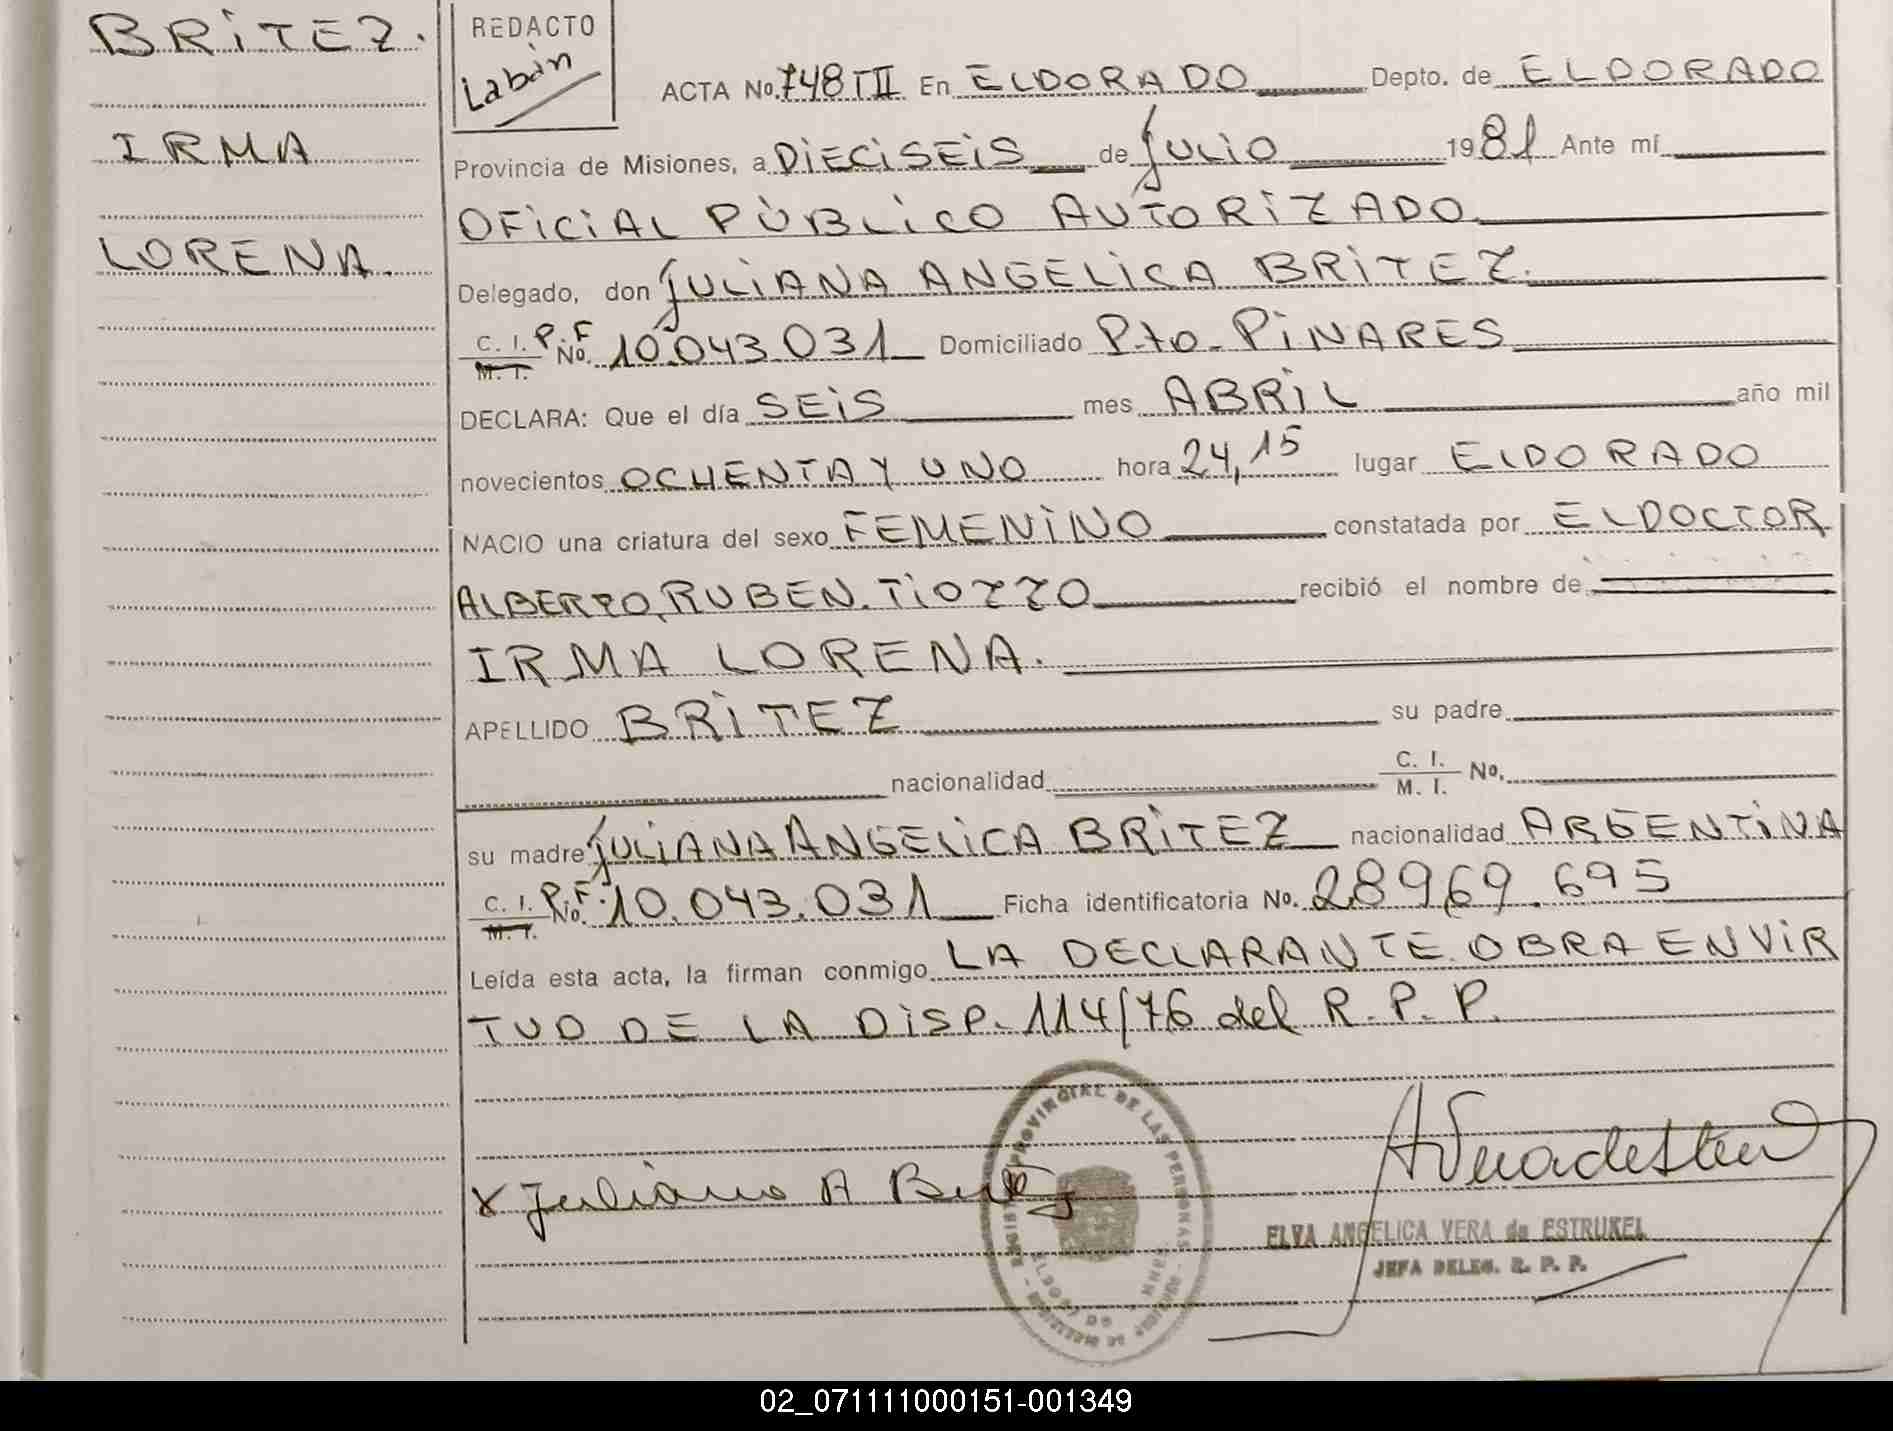 BRITEZ.
IRMA
LORENA.
REDACTO
Labán
ACTA No. 748 TII En ELDORADO Depto. de ELDORADO
Provincia de Misiones, a DIECISEIS de JULIO 1981 Ante mí
OFICIAL PÚBLICO AUTORIZADO
Delegado, don JULIANA ANGELICA BRITEZ.
C. I. P.F
M. I. No. 10.043.031 Domiciliado Pto. PINARES
DECLARA: Que el día SEIS mes ABRIL año mil
novecientos OCHENTA Y UNO hora 24,15 lugar ELDORADO
NACIO una criatura del sexo FEMENINO constatada por EL DOCTOR
ALBERTO, RUBEN. TIOZZO recibió el nombre de
IRMA LORENA.
APELLIDO BRITEZ su padre
nacionalidad C. I. M. I. No.
su madre JULIANA ANGELICA BRITEZ nacionalidad ARGENTINA
C. I. P.F.
M. I. No. 10.043.031 Ficha identificatoria No. 28969.695
Leída esta acta, la firman conmigo LA DECLARANTE. OBRA EN VIR
TUD DE LA DISP. 114/76 del R. P. P.
x Juliana A Britez
PROVINCIAL DE LAS PERSONAS
ELVA ANGELICA VERA de ESTRUKEL
JEFA DELEG. R. P. P.
02_071111000151-001349